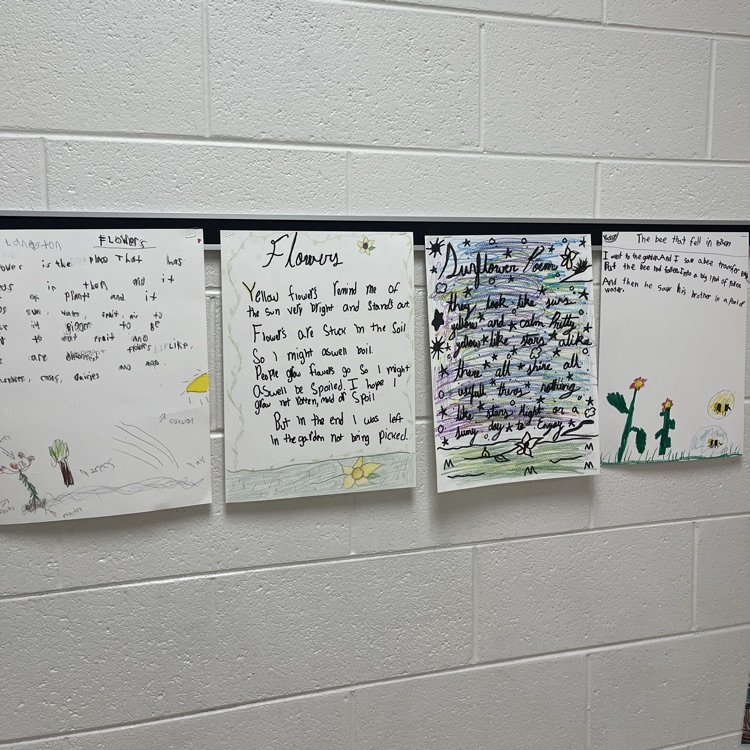 Langston
Flowers
ower is the place That has
in them and it
of plants and it
sun, water, fruit, air to
it bigger to be
fruit and
are different flowers like,
roses, daisies and more.
sunlight
air
Flowers
Yellow flowrs remind me of
the sun very bright and stands out
Flowers are Stuck in the Soil
So I might aswell boil.
People glow flowers go So I might
aswell be Spoiled. I hope I
grow not rotten, mold or Spoil
But in the end I was left
in the garden not being picked.
Sunflower Poem
they look like suns
yellow and calm Pretty
yellow like stars alike
there all shine all
usefull theirs nothing
like stars Night or a
sunny day to Enjoy
The bee that fell in water
I went to the garden. And I saw a bee transfer
But the bee had fallen into a big of water
And then he saw his brother in a of
water.